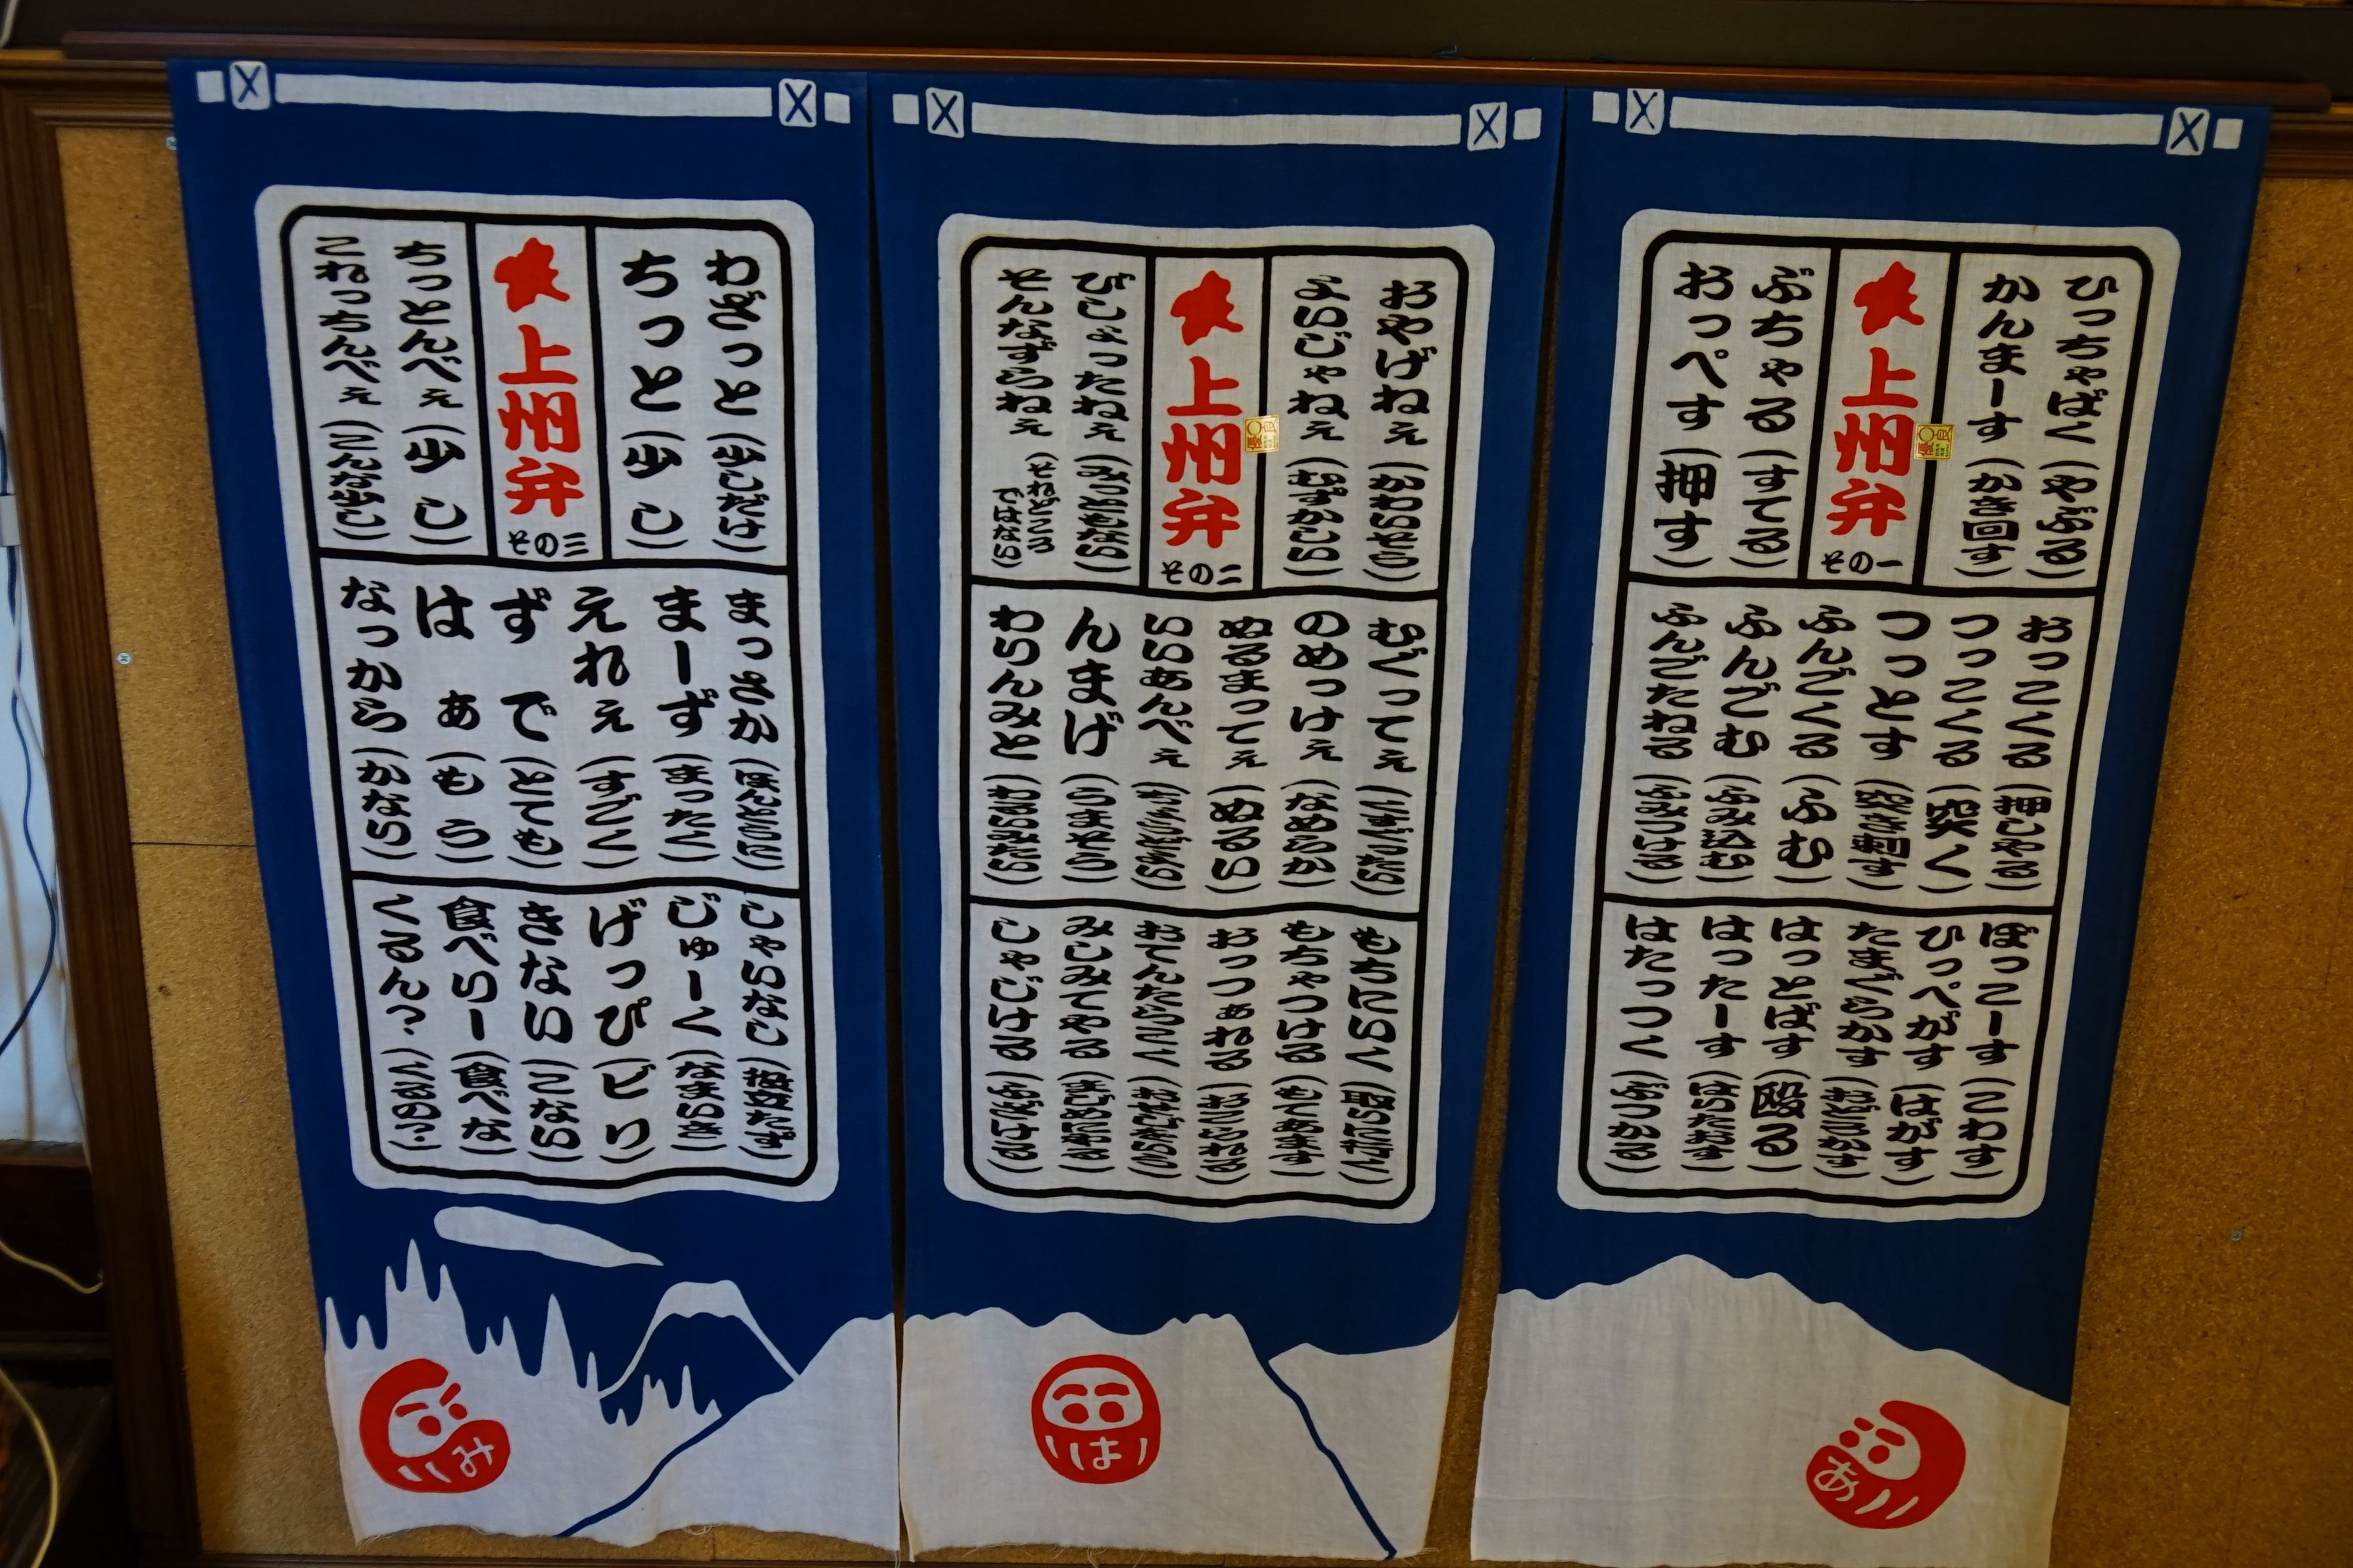 ひっちゃばく(やぶる)
かんまーす(かき回す)
上州弁
その一
ぶちゃる(すてる)
おっぺす(押す)
おっこくる(押しやる)
つっこくる(突く)
つっとす(突き刺す)
ふんごくる(ふむ)
ふんごむ(ふみ込む)
ふんごたねる(ふみつける)
ぼっこーす(こわす)
ひっぺがす(はがす)
たまぐらかす(おどろかす)
はっとばす(殴る)
はったーす(はりたおす)
はたっつく(ぶつかる)
あ
おやげねえ(かわいそう)
よいじゃねえ(むずかしい)
上州弁
その二
びしょったねえ(みっともない)
そんなずらねえ(それどころではない)
むぐってえ(くすぐったい)
のめっけえ(なめらか)
ぬるまってえ(ぬるい)
いいあんべえ(ちょうどよい)
んまげ(うまそう)
わりんみと(わるいみたい)
もちにいく(取りに行く)
もちゃつける(もてあます)
おてんたらこく(おせじをいう)
おっつぁれる(おこられる)
みしみてやる(まじめにやる)
しゃじける(ふざける)
は
わざっと(少しだけ)
ちっと(少し)
上州弁
その三
ちっとんべぇ(少し)
これっちんべぇ(こんな少し)
まっさか(ほんとうに)
まーず(まったく)
えれぇ(すごく)
ずで(とても)
はぁ(もう)
なっから(かなり)
しゃいなし(役立たず)
じゅーく(なまいき)
げっぴ(ビリ)
きない(こない)
食べりー(食べな)
くるん?(くるの?)
み